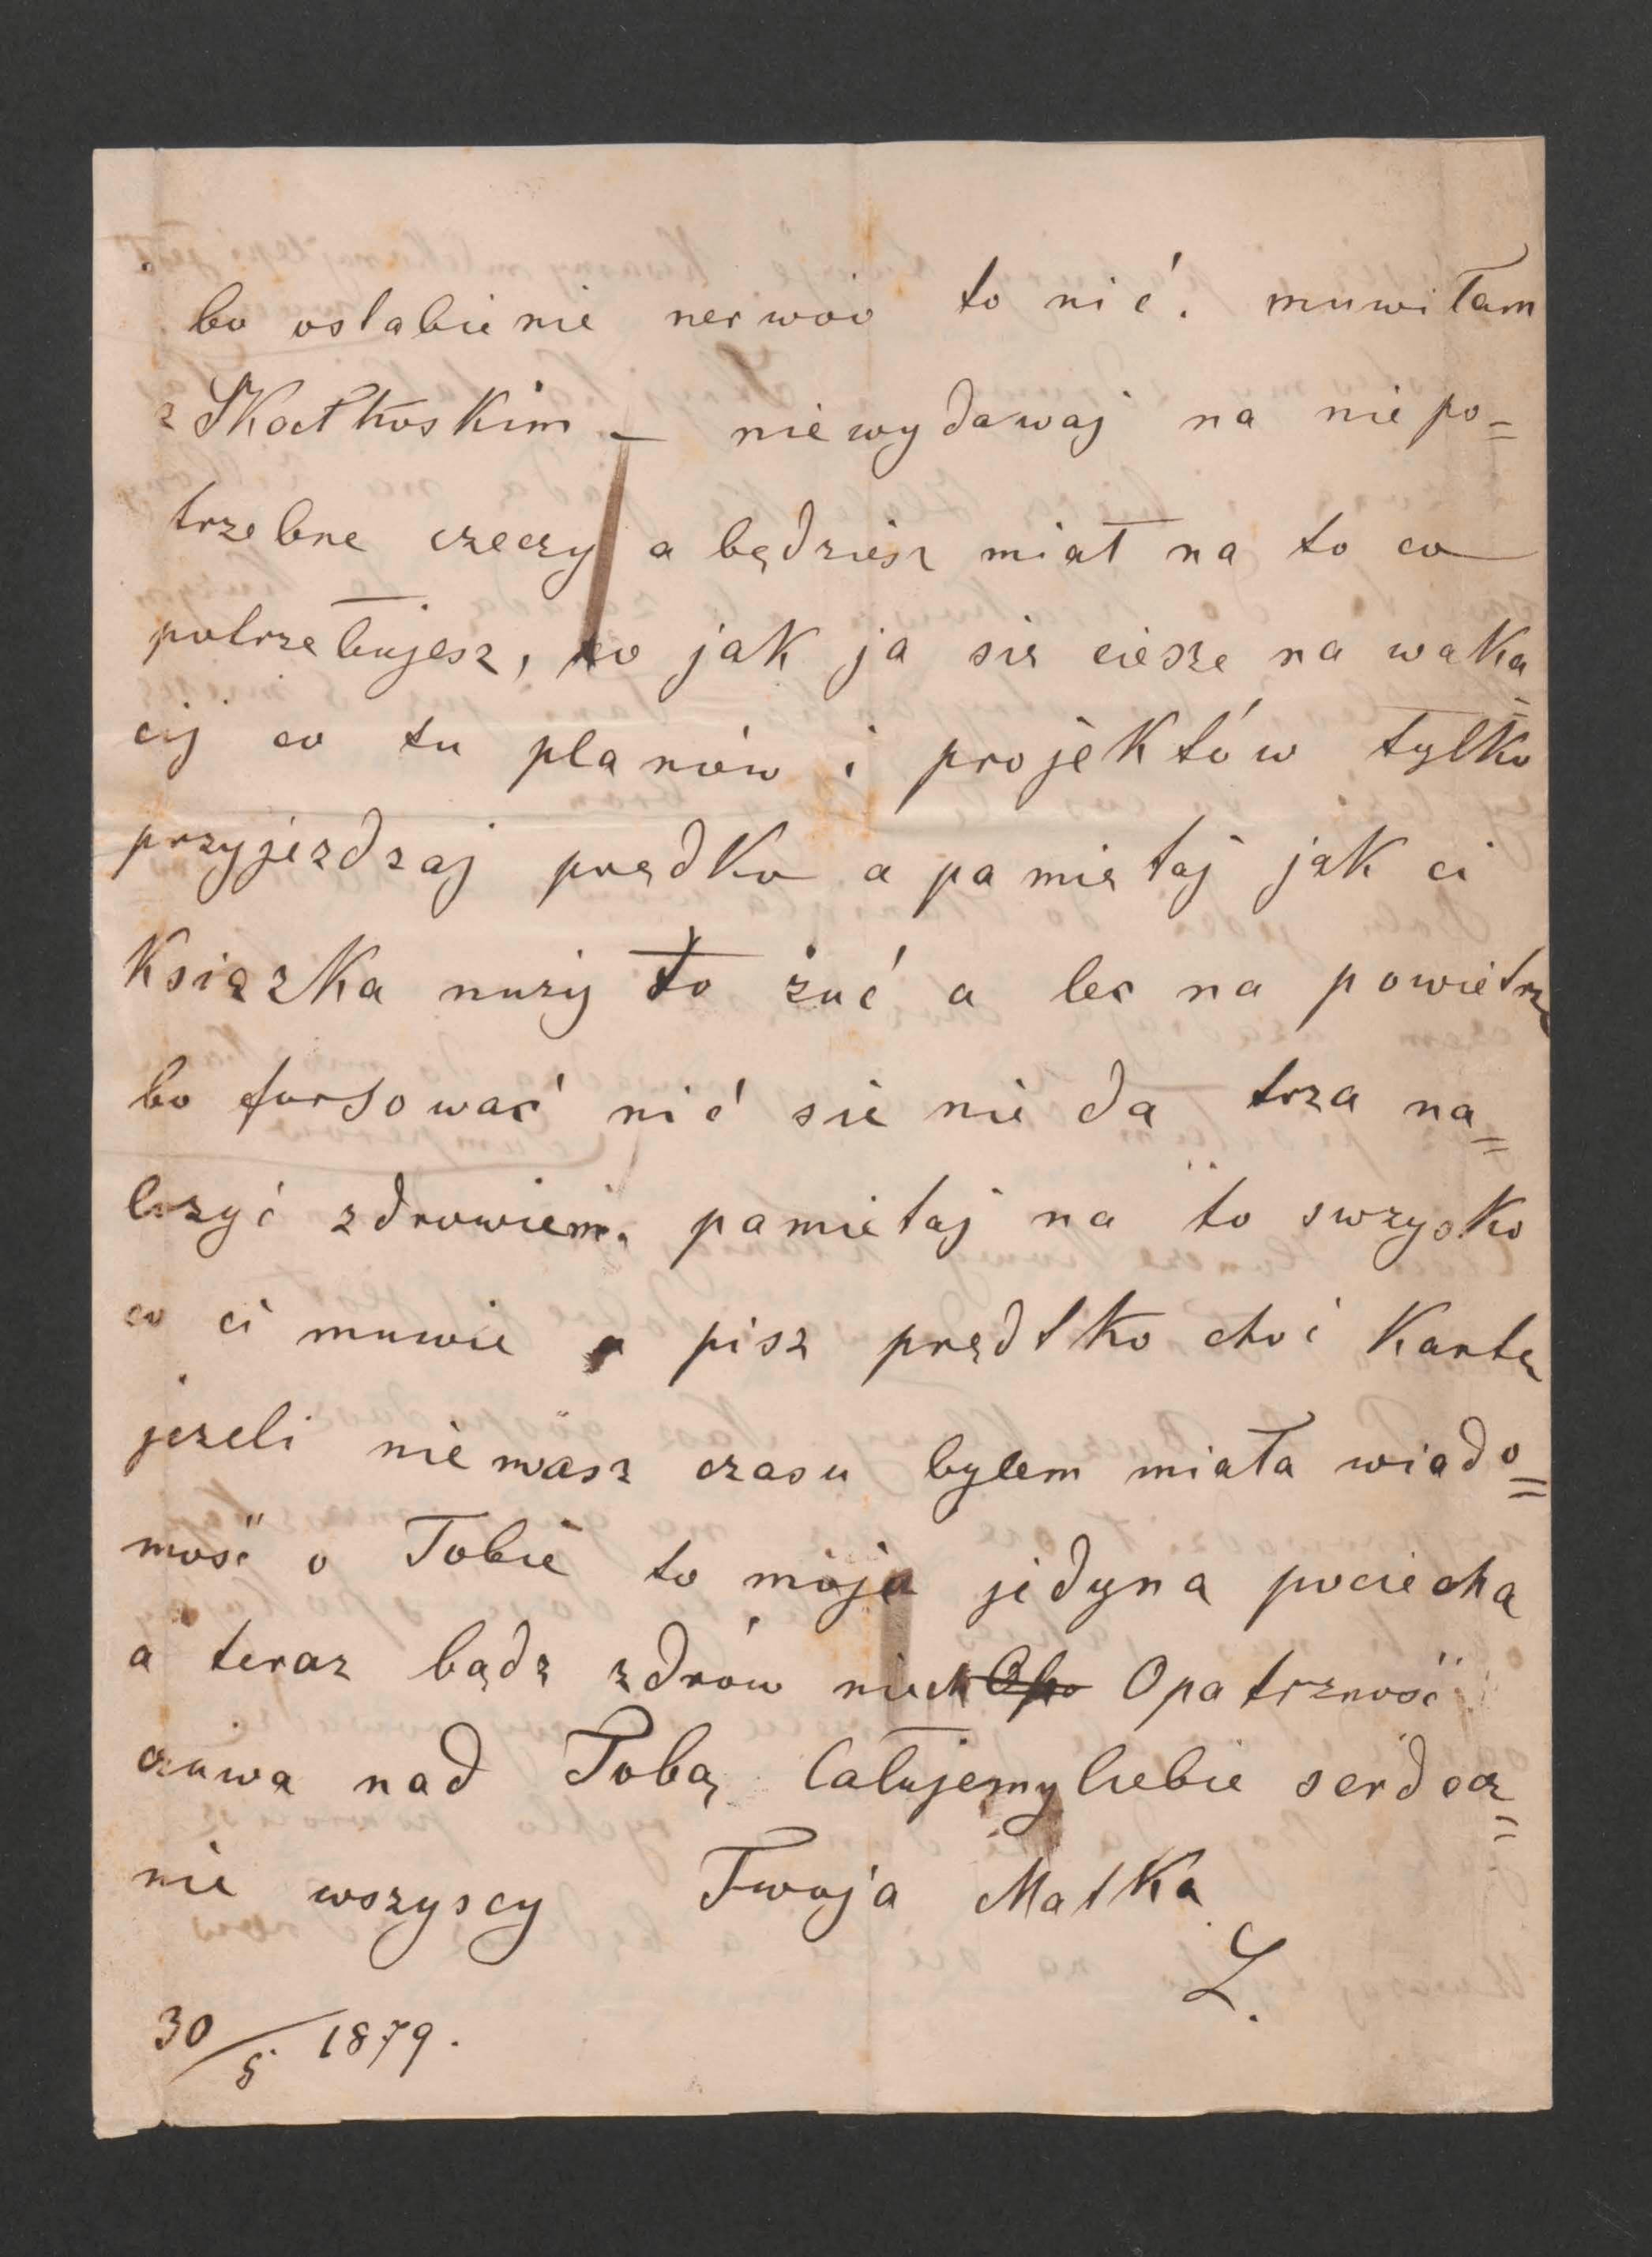 bo osłabienie nerwów to nić. muwiłam
z Skałkoskim — niewydawaj na niepo=
trzebne rzeczy a będziesz miał na to co
potrzebujesz, co jak ja się ciesze na waka=
cij co tu planów i projektów tylko
przyjezdzaj prędko a pamiętaj jak ci
Książka nuży to żuć a leć na powietrze
bo forsować nić sie nie da trza na=
lezyć zdrowiem. pamietaj na to swzysko
co ci muwie a pisz prędtko choć Kartę
jezeli niemasz czasu bylem miała wiado=
mość o Tobie to moja jedyna pociecha
a teraz bądz zdrów niech Opatrzność
czuwa nad Tobą Całujemy Ciebie serdecz=
nie wszyscy Twoja Matka
L.
30/5 1879.